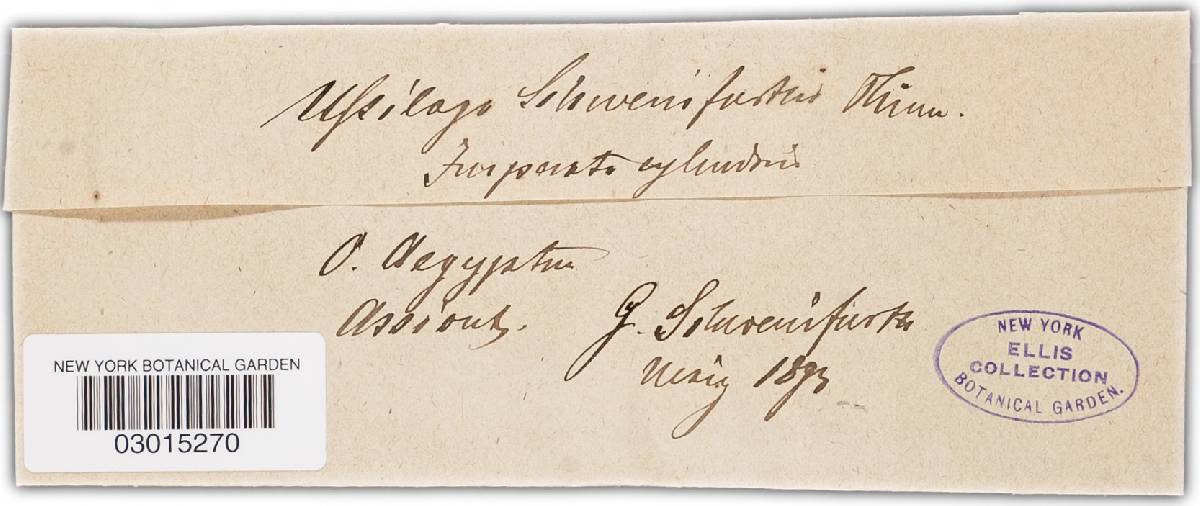 Ustilago Schweinfurthii Thüm.
Imperata cylindrica
O. Aegyptus
Assiout. G. Schweinfurth
1873
NEW YORK
ELLIS
COLLECTION
BOTANICAL GARDEN.
NEW YORK BOTANICAL GARDEN
03015270